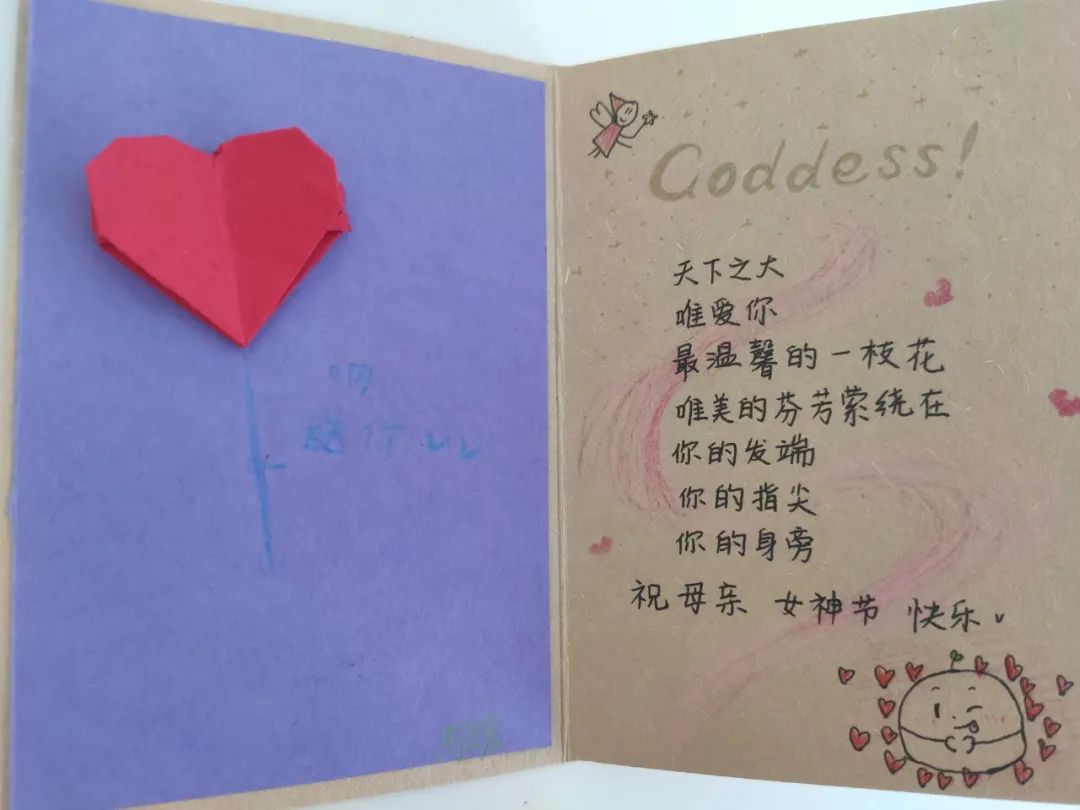 送你
Goddess!
天下之大
唯爱你
最温馨的一枝花
唯美的芬芳萦绕在
你的发端
你的指尖
你的身旁
祝母亲 女神节 快乐。